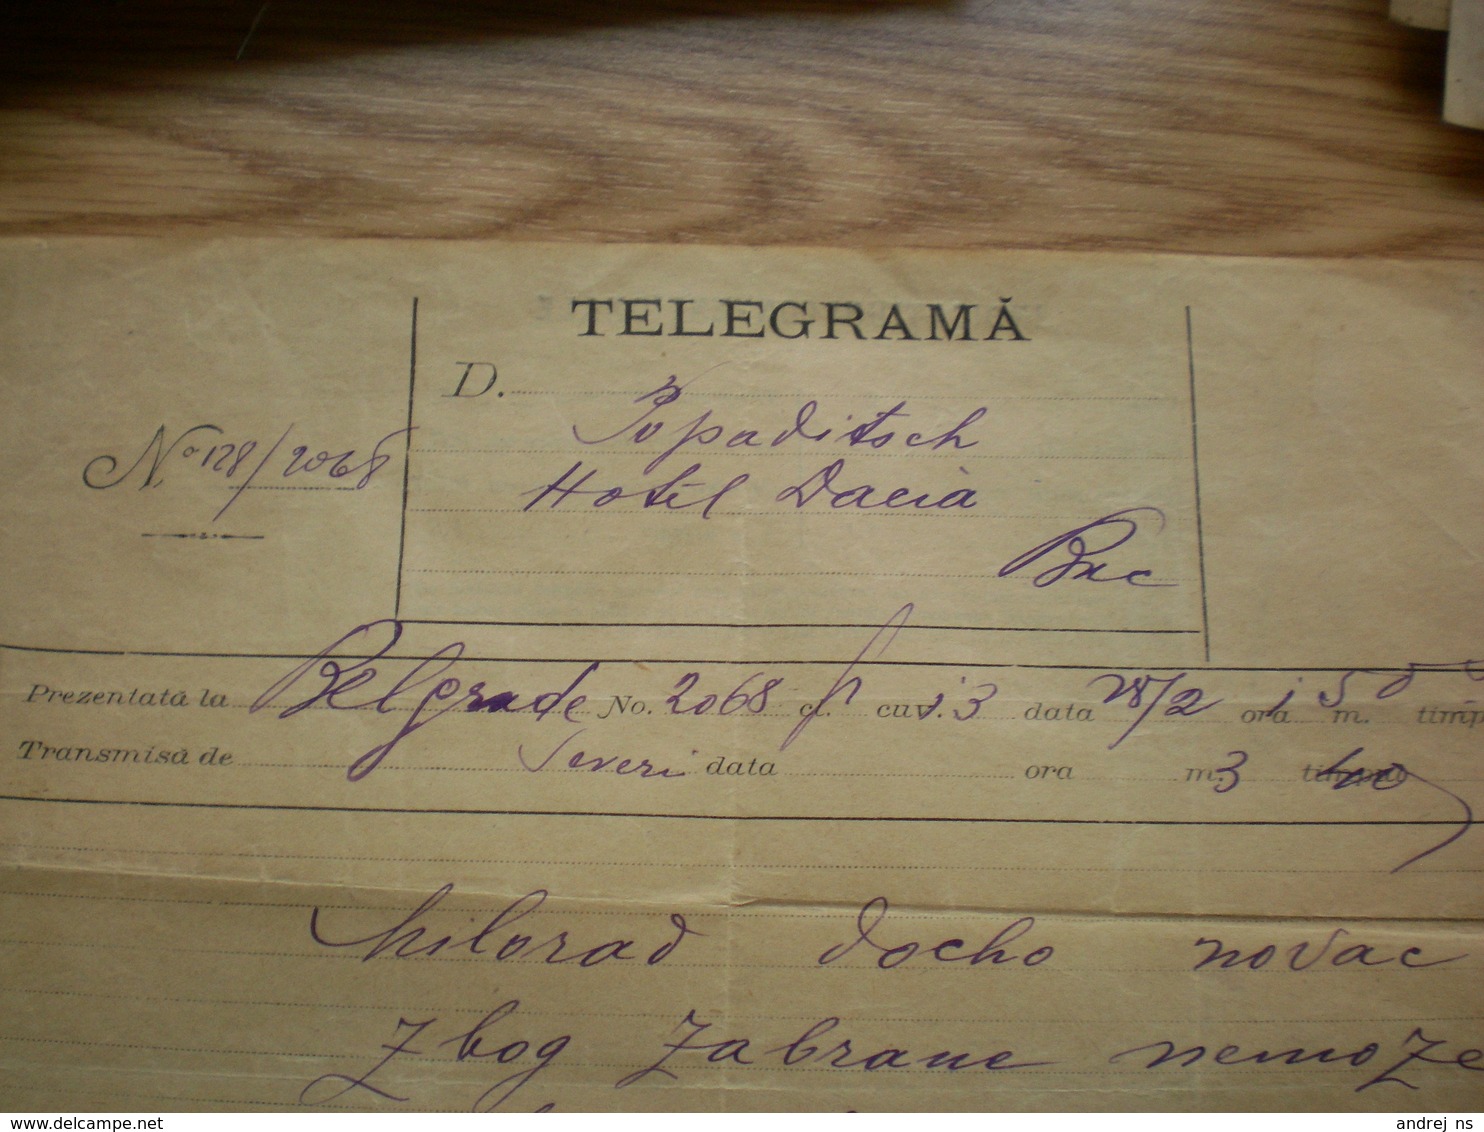 TELEGRAMĂ
D. Popaditsch
No 128/2068
Hotel Dacia
Buc
Prezentată la Belgrade No. 2068 cl. cuv. 13 data 28/2 ora 1 m. 50 timp
Transmisă de Severi data ora m. 3
Milorad docho novac
Zbog Zabrane nemoze
delcampe.net
andrej_ns